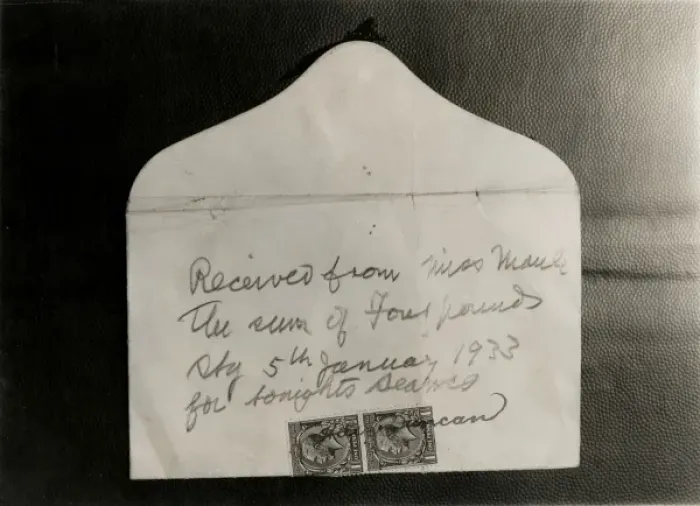 Received from Miss Maule
The sum of Four pounds
Stg 5th January 1933
for tonights Seance
Duncan
ONE PENNY